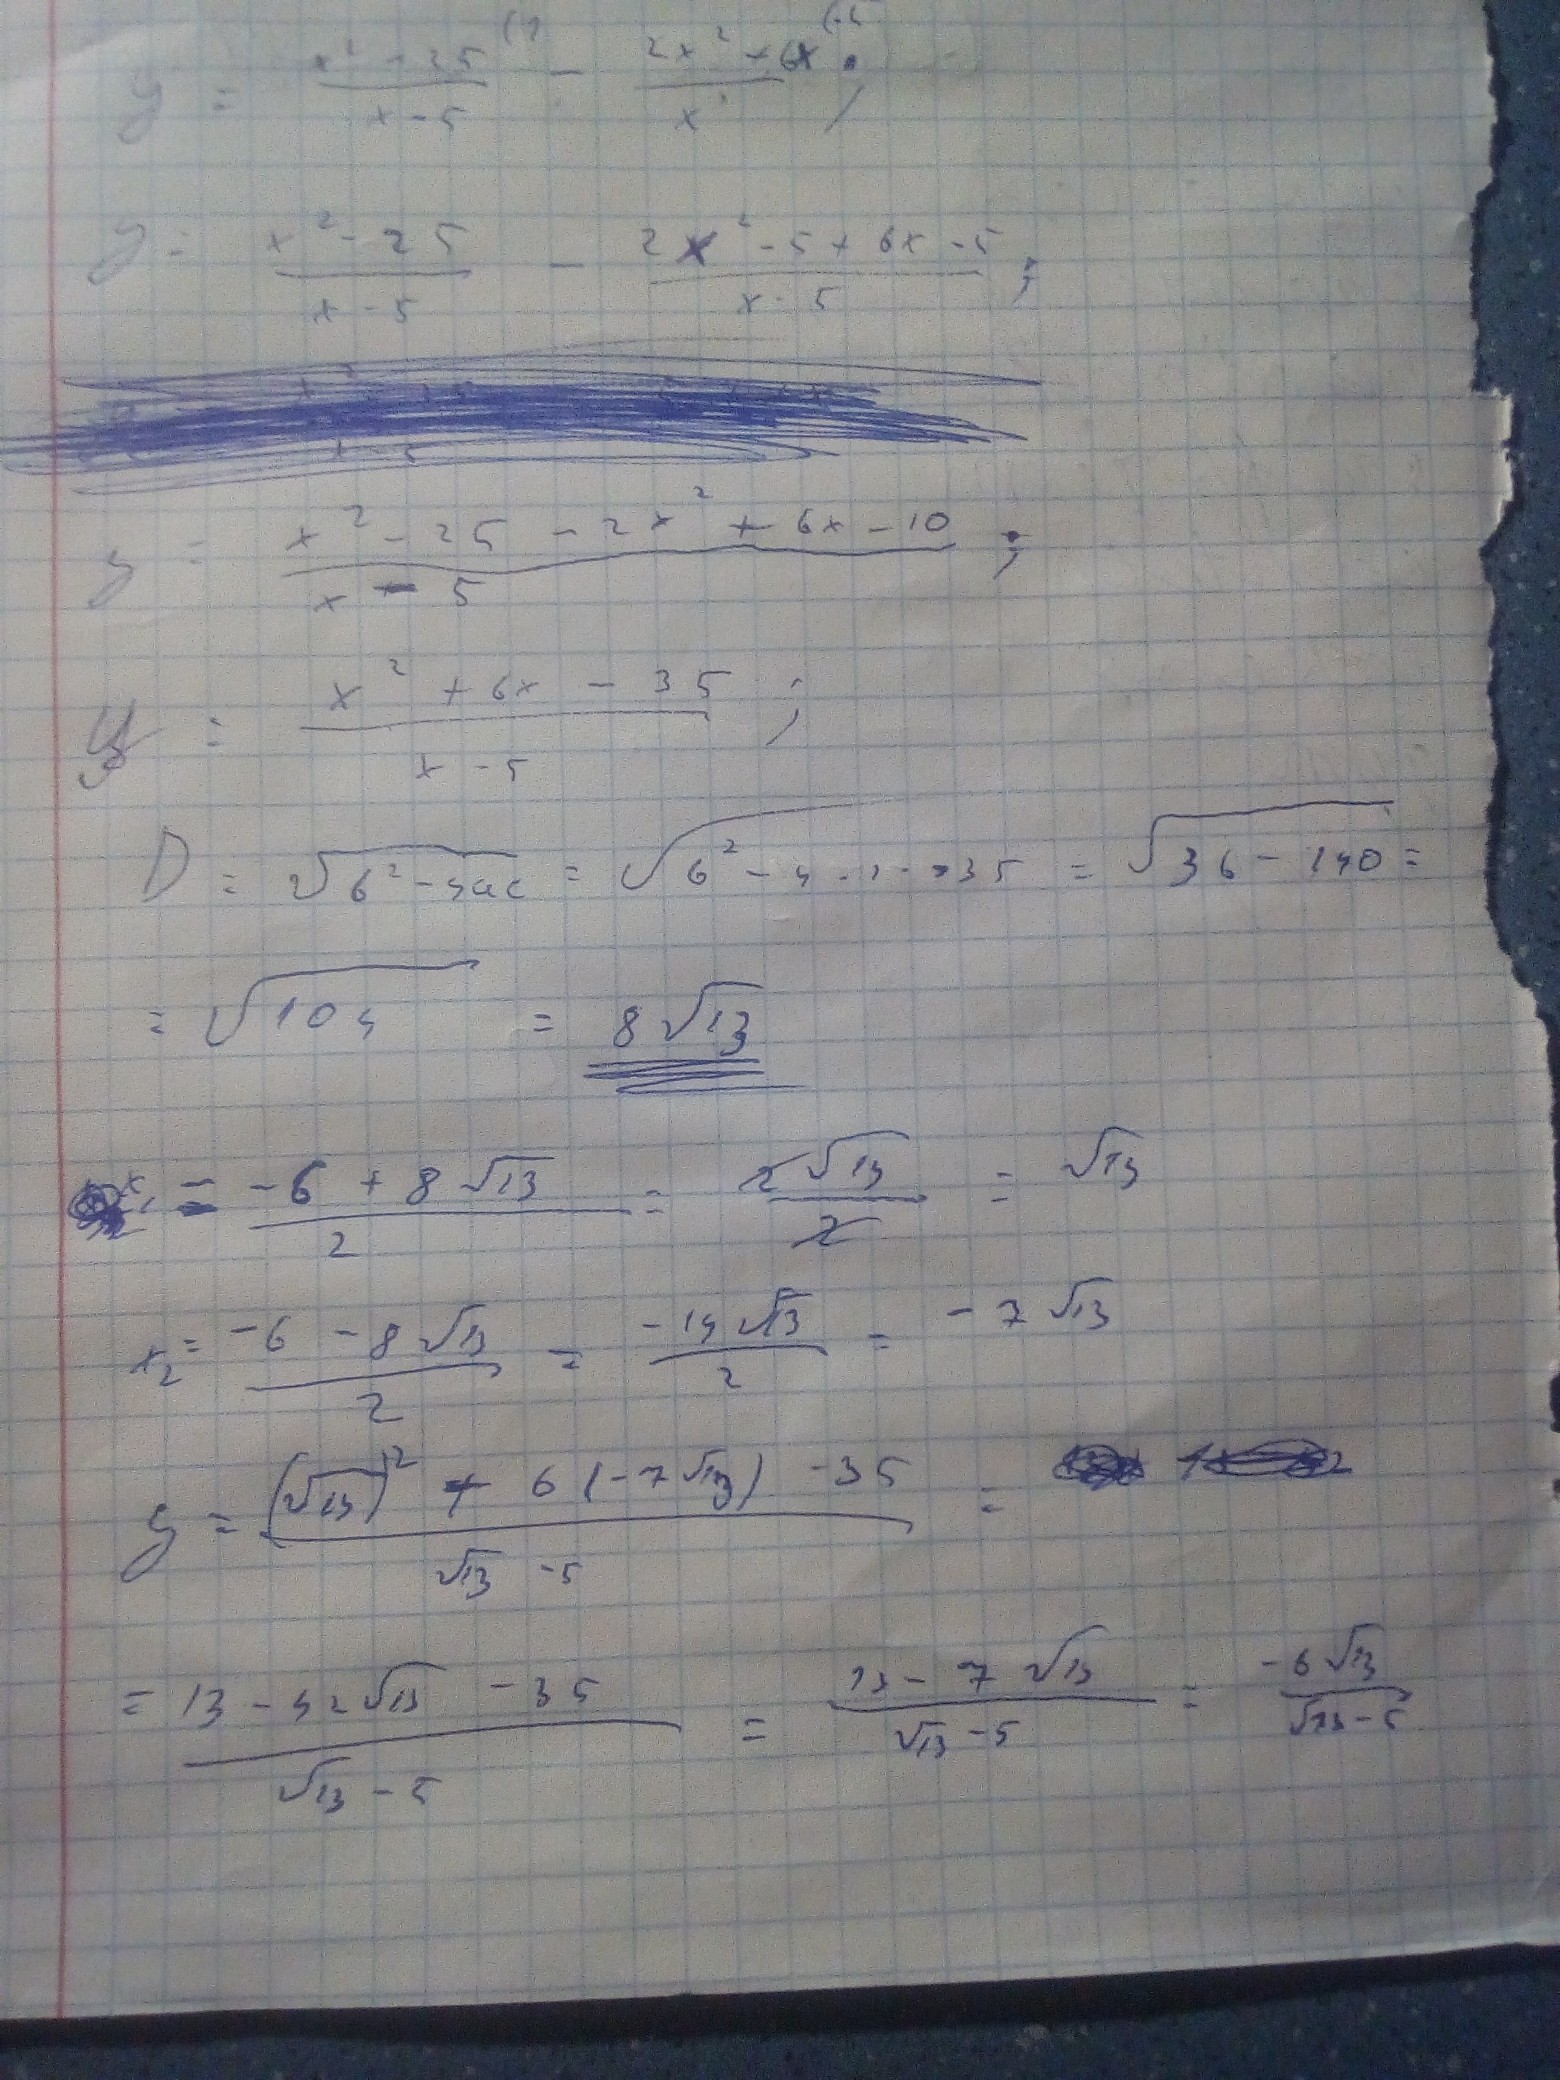 y = (x² - 25)/(x - 5) - (2x² + 6x)/x ;
y = (x² - 25)/(x - 5) - (2x² - 5 + 6x - 5)/(x - 5) ;
y = (x² - 25 - 2x² + 6x - 10)/(x - 5) ;
y = (x² + 6x - 35)/(x - 5) ;
D = √(b² - 4ac) = √(6² - 4 · 1 · 35) = √(36 - 140) =
= √104 = 8√13
x₁ = (-6 + 8√13)/2 = 2√13/2 = √13
x₂ = (-6 - 8√13)/2 = -14√13/2 = -7√13
y = ((√13)² + 6(-7√13) - 35)/(√13 - 5) =
= (13 - 42√13 - 35)/(√13 - 5) = (13 - 7√13)/(√13 - 5) = -6√13/(√13 - 5)